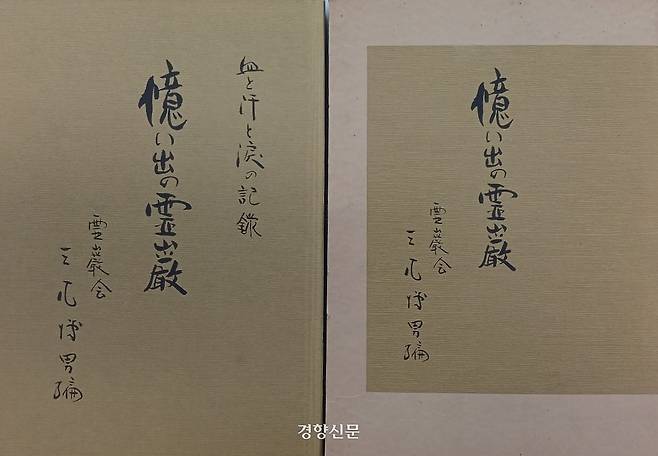 血と汗と涙の記録
憶い出の霊巌
霊巌会
三尾博男編
憶い出の霊巌
霊巌会
三尾博男編
경향신문